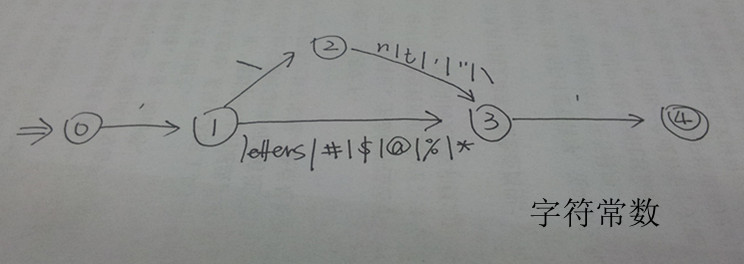 0
'
1
\
2
n|t|'|"|\
letters|#|$|@|%|*
3
'
4
字符常数